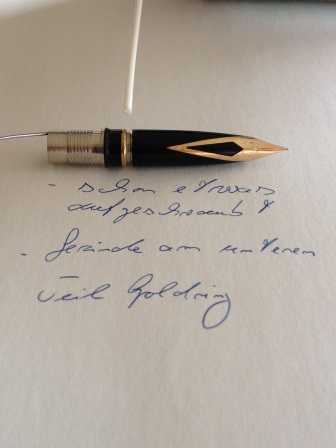 - schon etwas
aufgeschraubt
- Gewinde am unteren
Teil Goldring